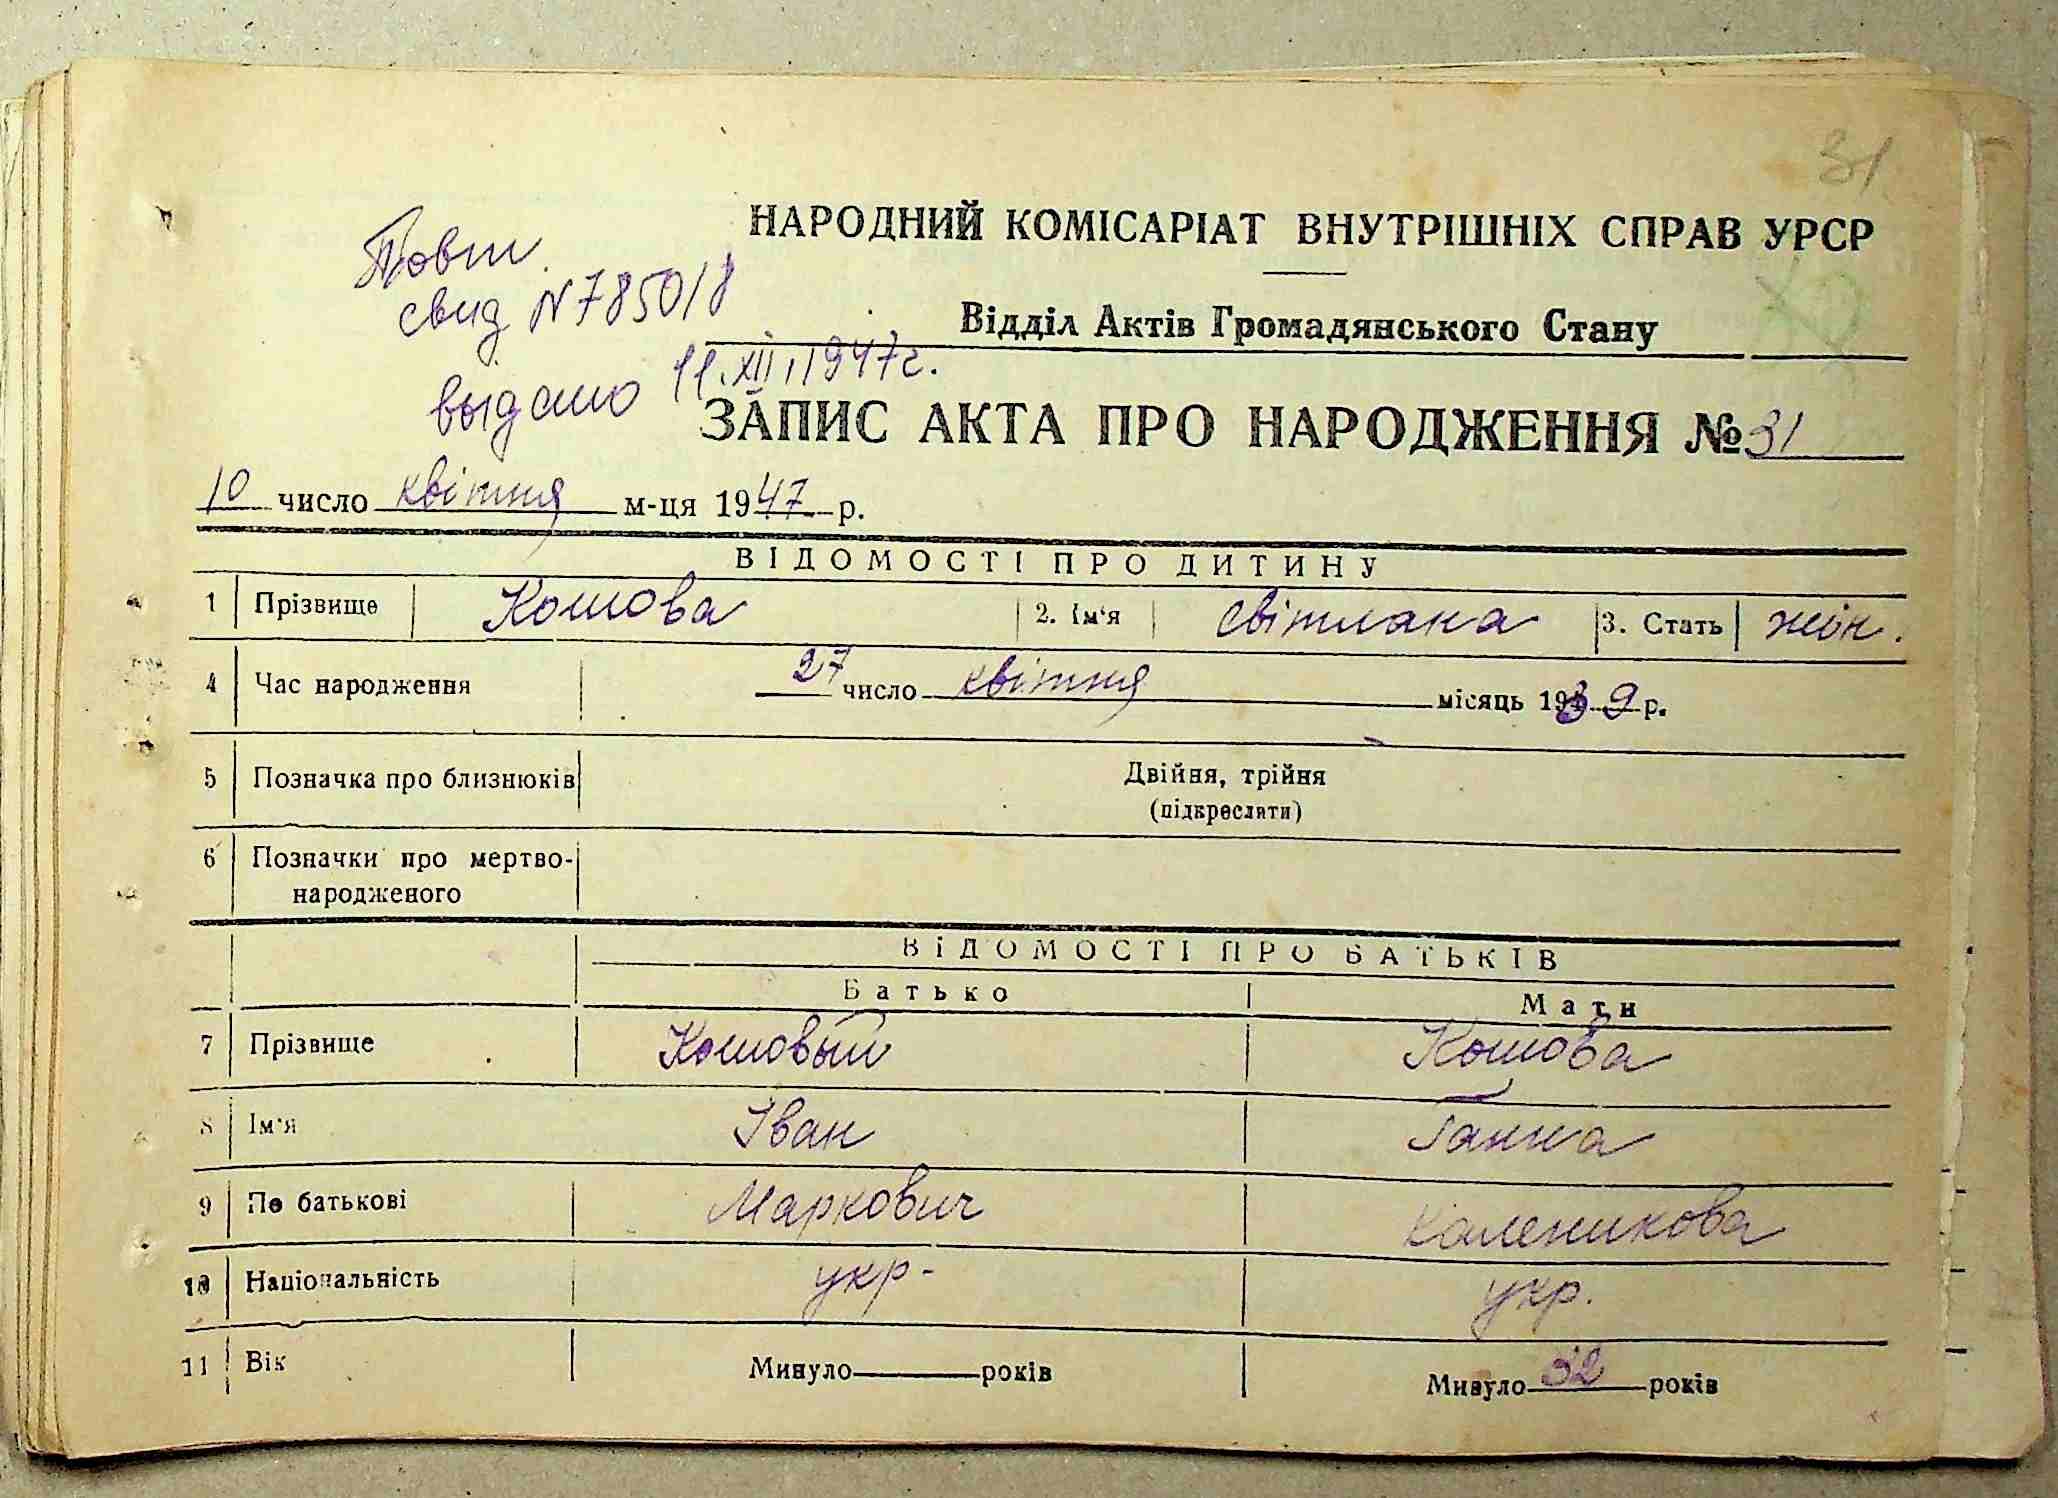 31
НАРОДНИЙ КОМІСАРІАТ ВНУТРІШНІХ СПРАВ УРСР
Повт.
свид N 785018
выдано 11.XII.1947г.
Відділ Актів Громадянського Стану
ЗАПИС АКТА ПРО НАРОДЖЕННЯ № 31
10 число квітня м-ця 1947 р.
ВІДОМОСТІ ПРО ДИТИНУ
1 Прізвище Кошова 2. Ім'я Світлана 3. Стать жін.
4 Час народження 27 число квітня місяць 1939 р.
5 Позначка про близнюків Двійня, трійня
(підкреслити)
6 Позначки про мертво-
народженого
ВІДОМОСТІ ПРО БАТЬКІВ
Батько Мати
7 Прізвище Кошовый Кошова
8 Ім'я Іван Ганна
9 По батькові Маркович Каленикова
10 Національність укр- укр.
11 Вік Минуло років Минуло 32 років